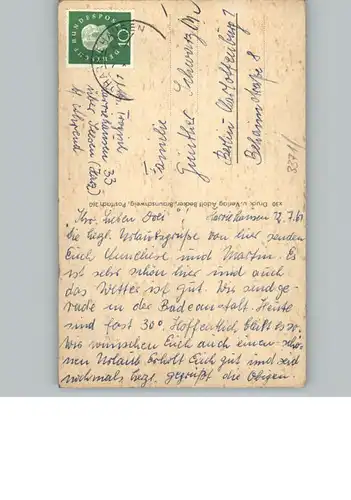 DEUTSCHE BUNDESPOST
10
Familie
Günther Schwarz
Berlin-Charlottenburg
Behaimstraße 8
33
über Seesen (Harz)
x30 Druck u. Verlag Adolf Becker, Braunschweig, Postfach 350
Ihr lieben Drei! Harriehausen 7.61
Die herzl. Urlaubsgrüße von hier senden
Euch Anneliese und Martin. Es
ist sehr schön hier und auch
das Wetter ist gut. Wir sind ge-
rade in der Badeanstalt. Heute
sind fast 30°. Hoffentlich bleibt es so.
Wir wünschen Euch auch einen schö-
nen Urlaub. Erholt Euch gut und seid
nochmals herzl. gegrüßt die Obigen.